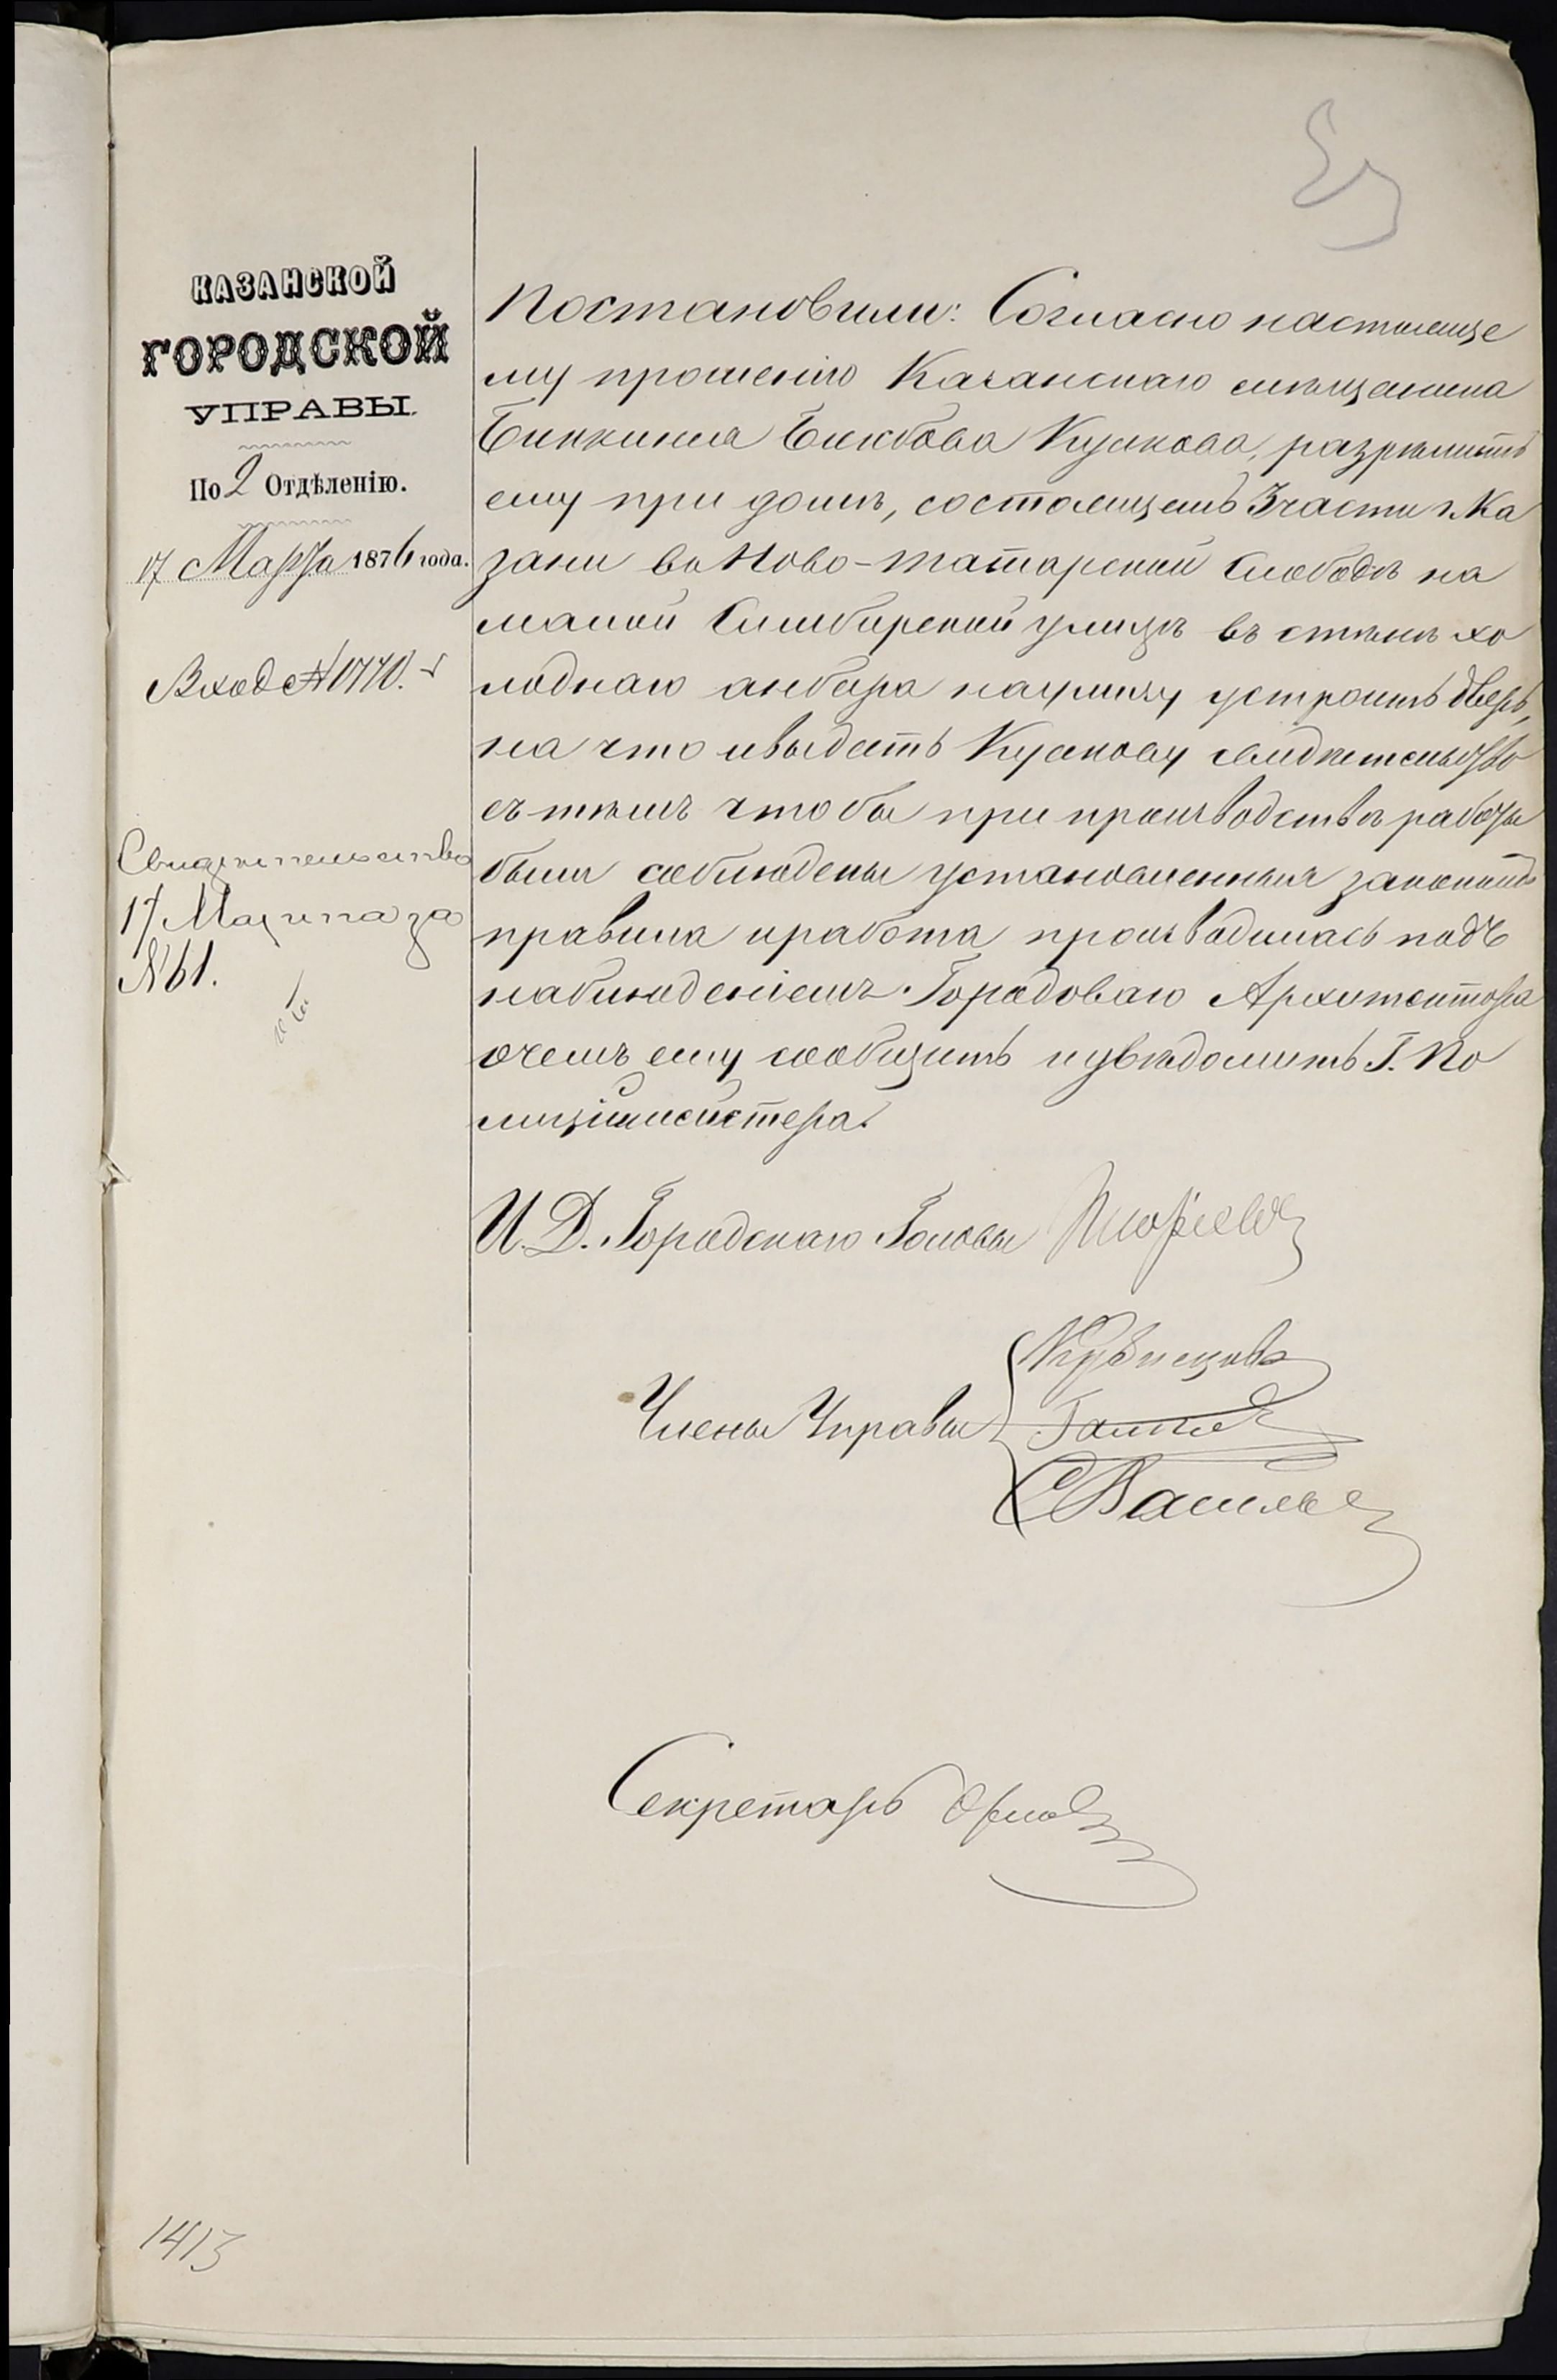 КАЗАНСКОЙ
ГОРОДСКОЙ
УПРАВЫ.
По 2 Отдѣленію.
17 Марта 1876 года.
Вход № 1770.
Свидѣтельство
17 Марта за
№ 61.
Постановили: Согласно настояще
му прошенію Казанскаго мѣщанина
Кускова, разрѣшить
ему при домѣ, состоящемъ 3 части г. Ка
зани въ Ново-татарской Слободѣ на
малой Симбирской улицѣ въ стѣнѣ хо
лоднаго анбара на улицу устроить дверь,
на что и выдать Кускову свидѣтельство
съ тѣмъ чтобы при производствѣ работы
были соблюдены установленныя закономъ
правила и работа производилась подъ
наблюденіемъ Городоваго Архитектора
о чемъ ему сообщить и увѣдомить Г. По
лиціймейстера.
И. Д. Городскаго Головы
Члены Управы
Кувшинов
С Васильев
Секретарь Орлов
1413